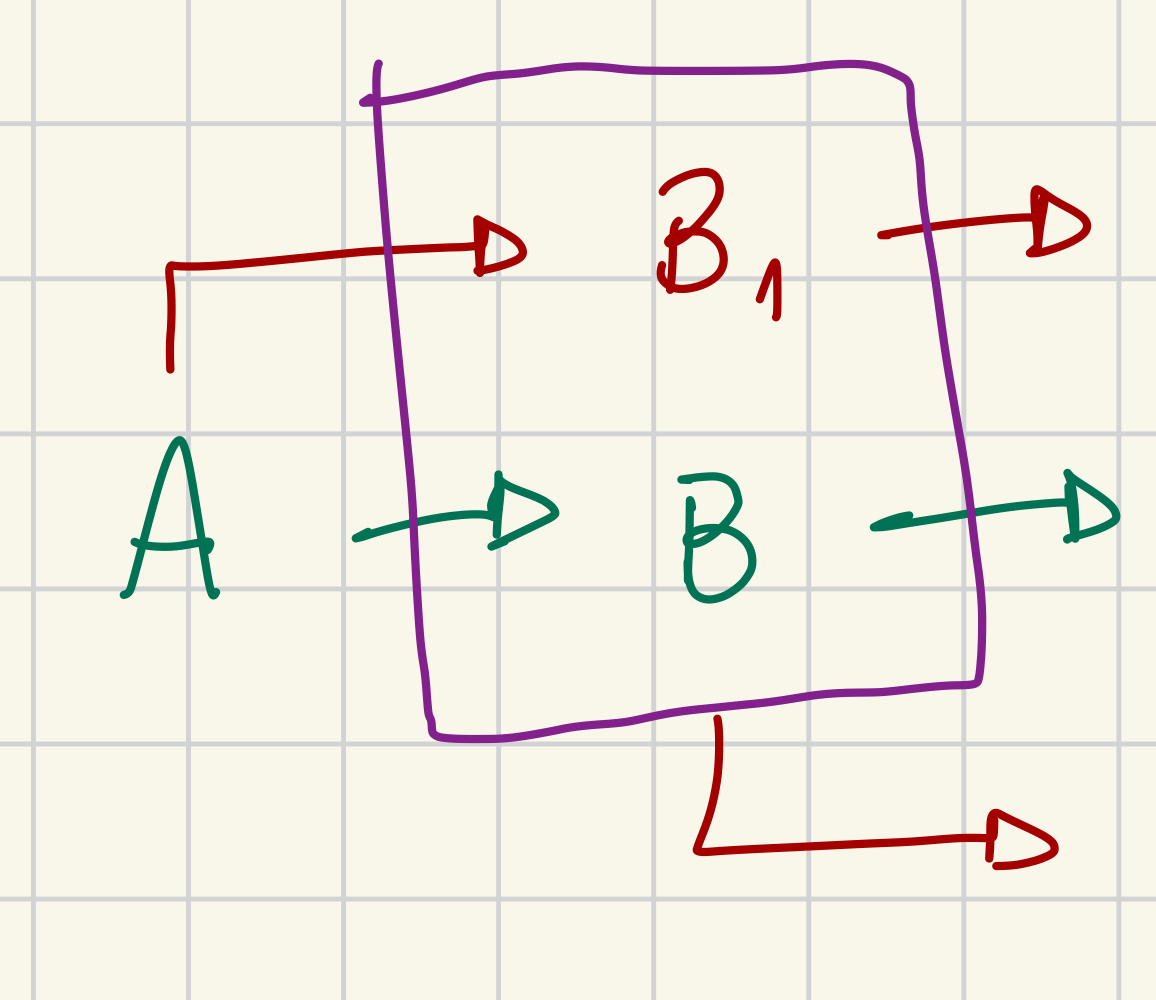 B1
A B